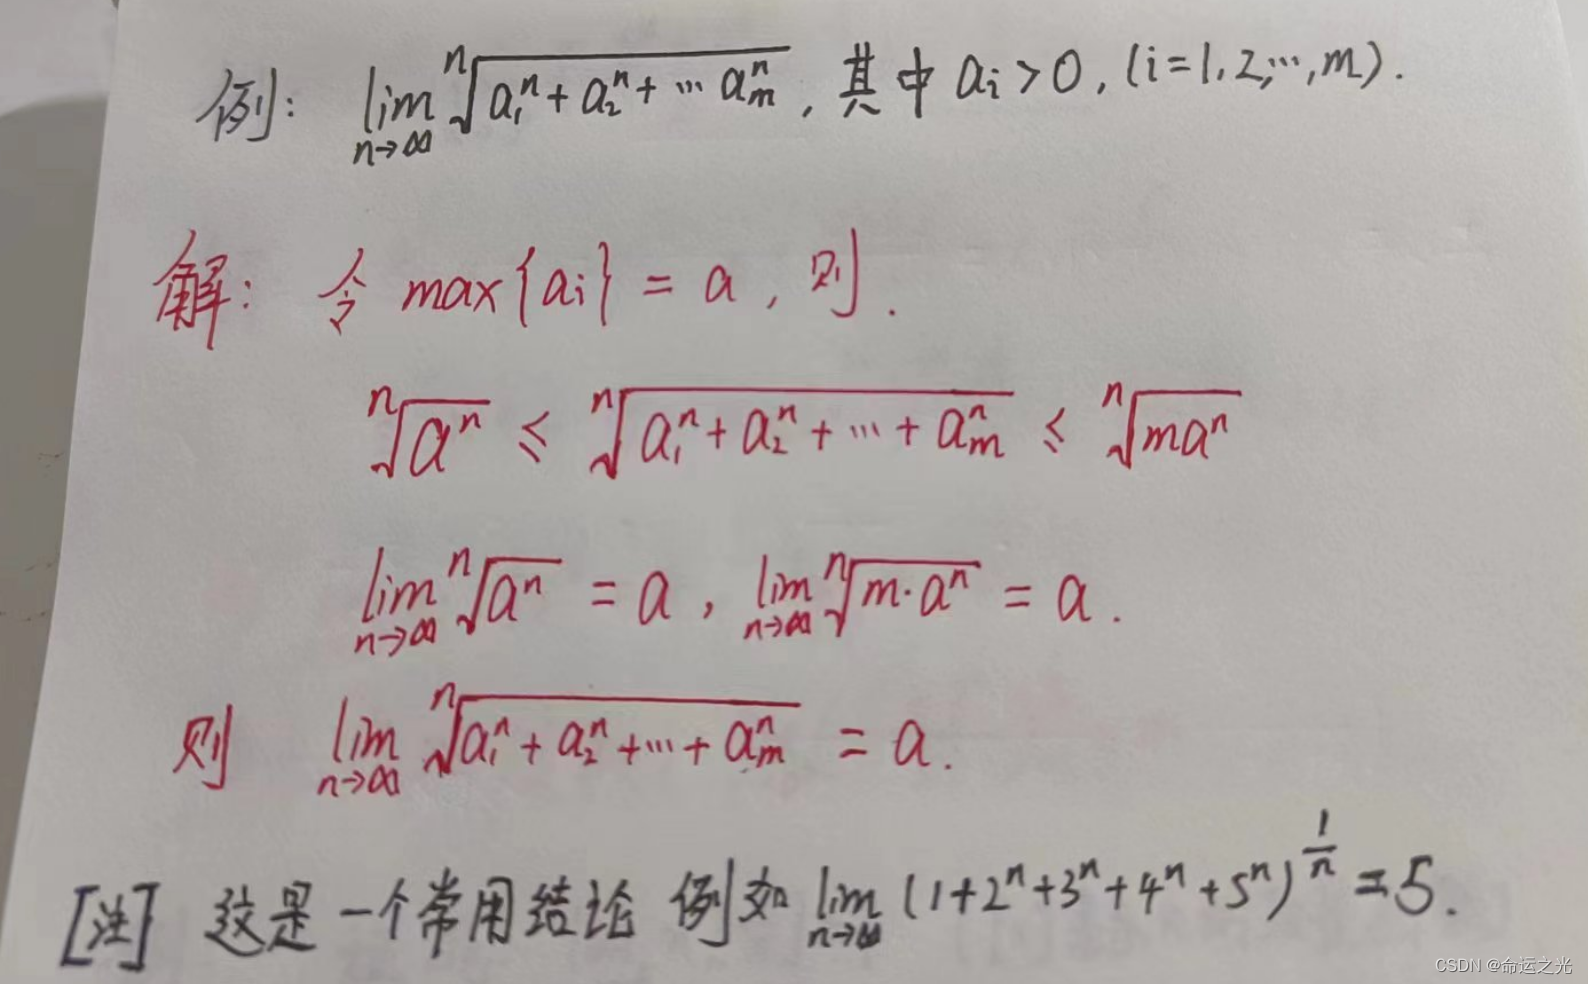 例: lim_{n→∞} ⁿ√(a₁ⁿ + a₂ⁿ + ··· aₘⁿ) , 其中 aᵢ > 0 , (i=1,2,···,m) .
解: 令 max{aᵢ} = a , 则 .
ⁿ√(aⁿ) ≤ ⁿ√(a₁ⁿ + a₂ⁿ + ··· + aₘⁿ) ≤ ⁿ√(maⁿ)
lim_{n→∞} ⁿ√(aⁿ) = a , lim_{n→∞} ⁿ√(m·aⁿ) = a .
则 lim_{n→∞} ⁿ√(a₁ⁿ + a₂ⁿ + ··· + aₘⁿ) = a .
[注] 这是一个常用结论 例如 lim_{n→∞} (1+2ⁿ+3ⁿ+4ⁿ+5ⁿ)^{1/n} = 5 .
CSDN @命运之光